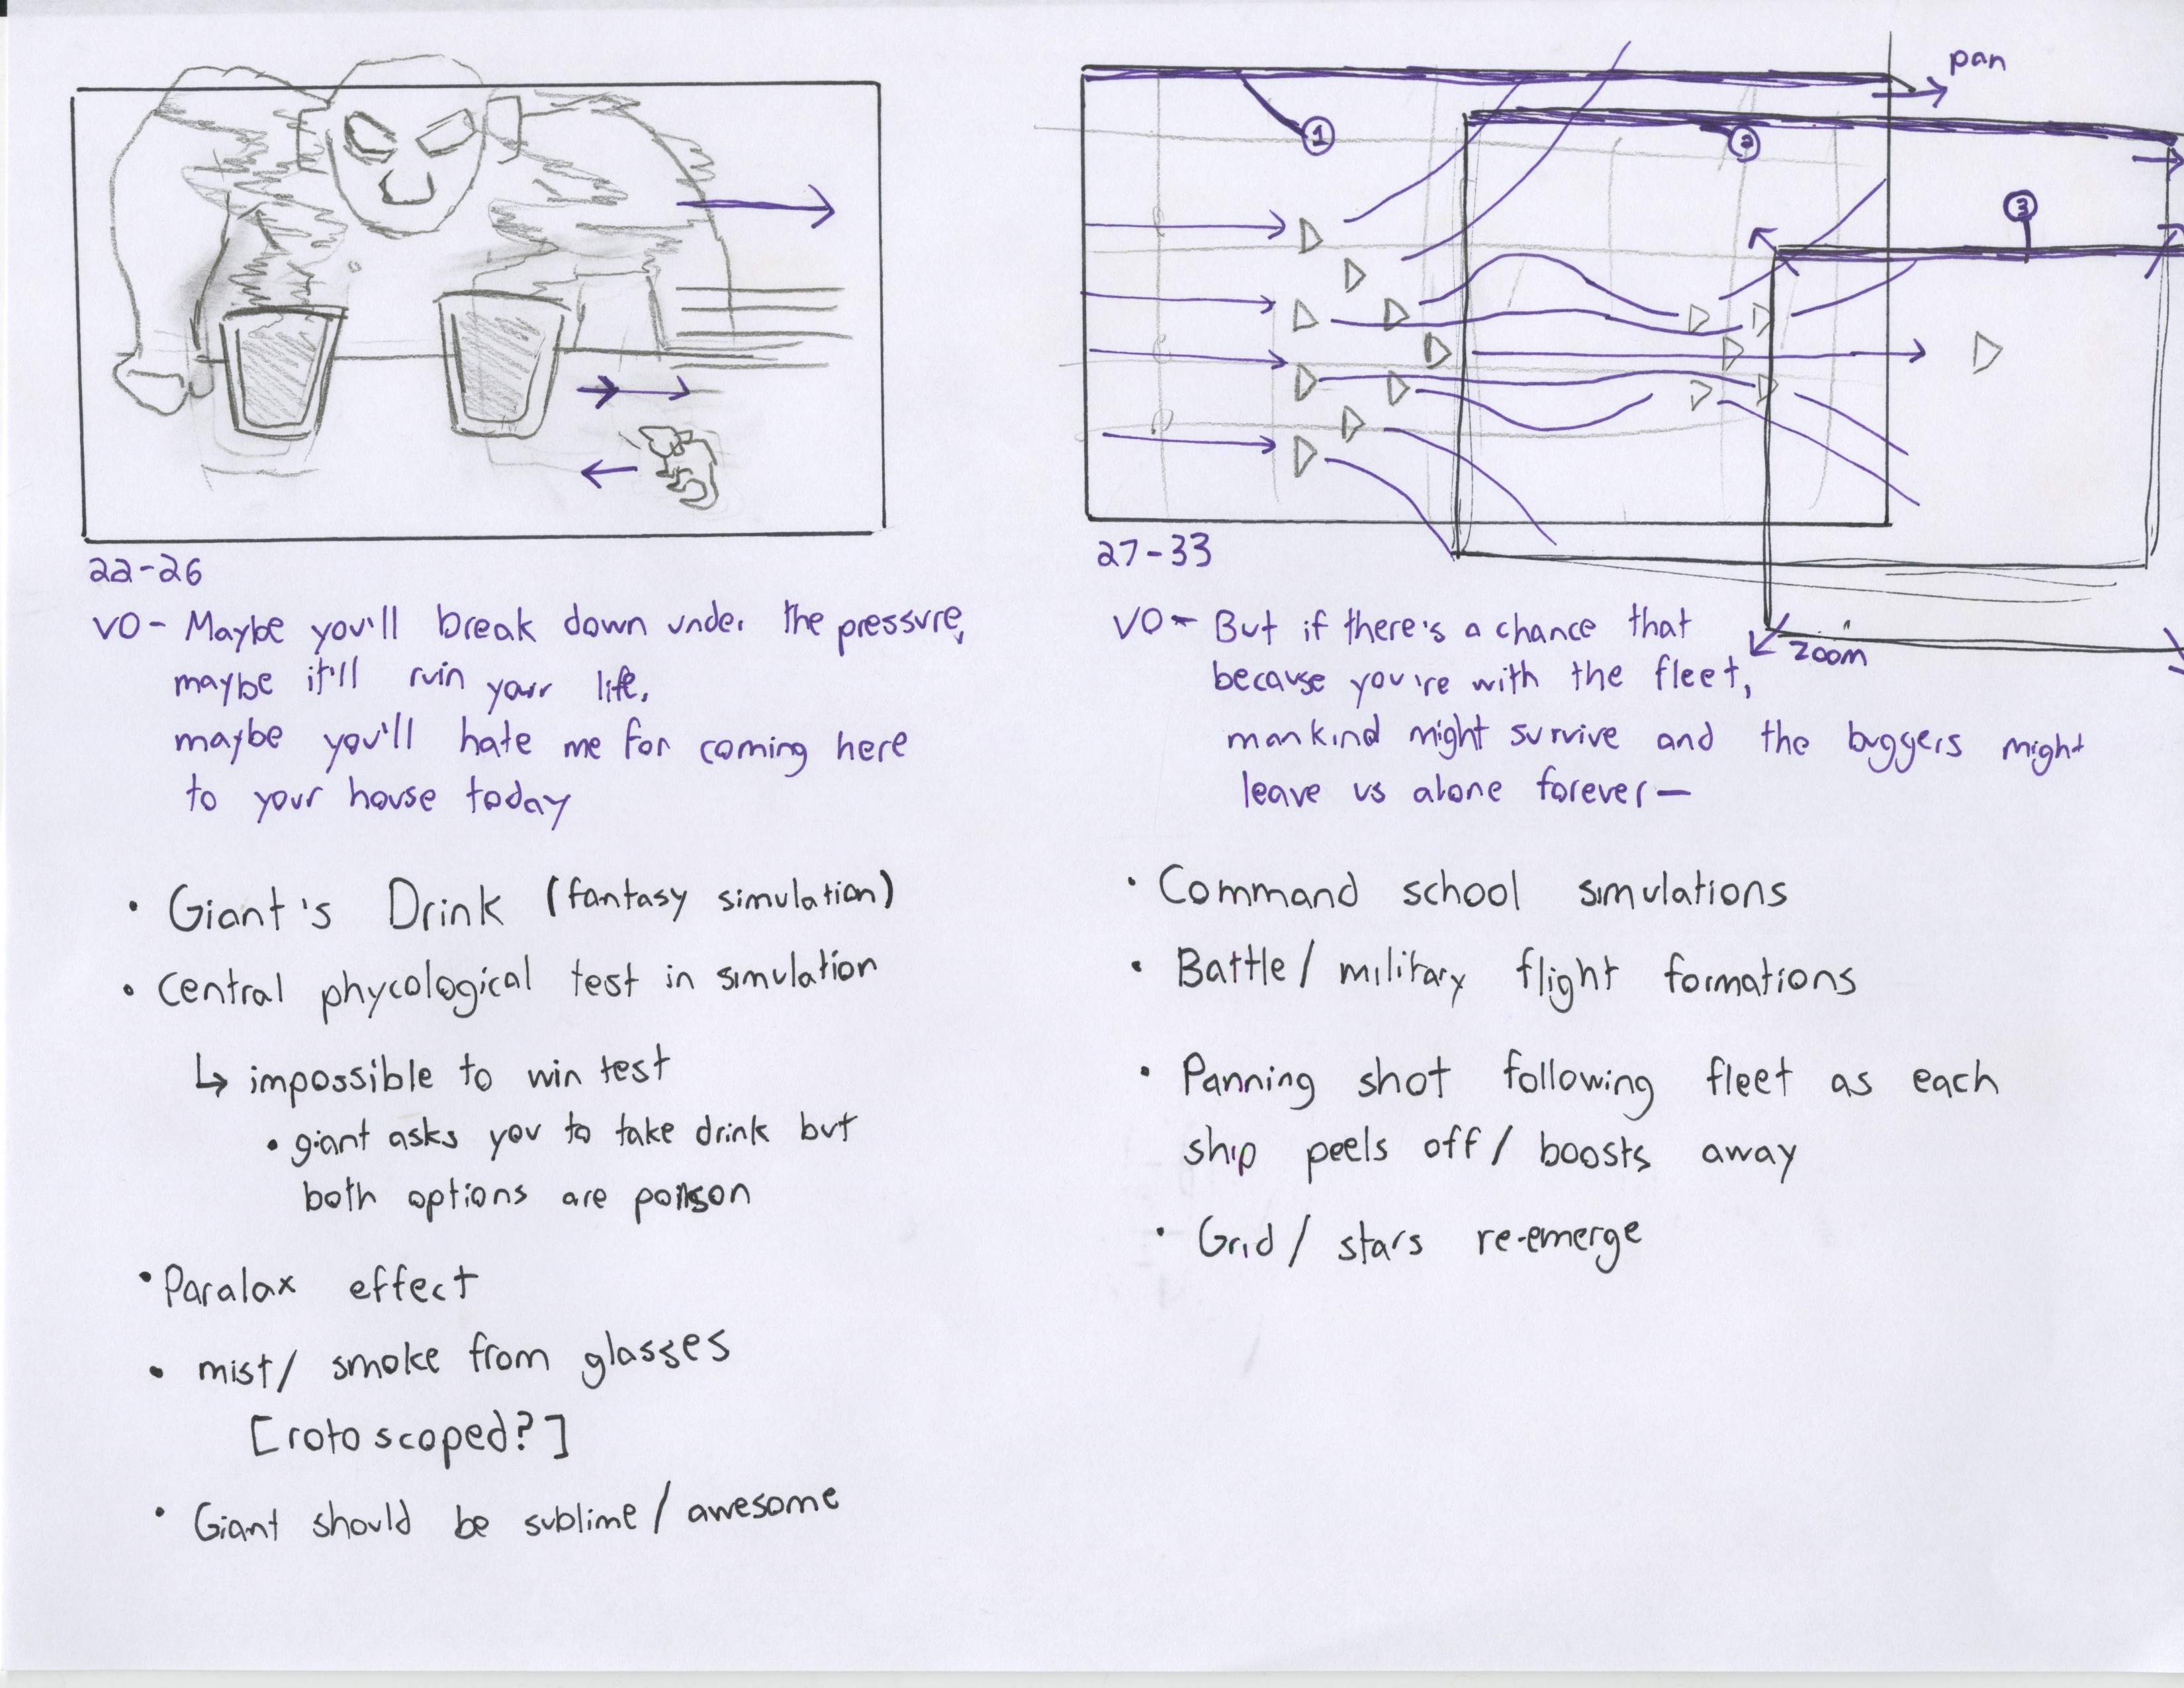 pan
1
2
3
zoom
22-26
VO- Maybe you'll break down under the pressure,
maybe it'll ruin your life,
maybe you'll hate me for coming here
to your house today
• Giant's Drink (fantasy simulation)
• Central phycological test in simulation
↳ impossible to win test
• giant asks you to take drink but
both options are poison
• Paralax effect
• mist/ smoke from glasses
[rotoscoped?]
• Giant should be sublime/awesome
27-33
VO- But if there's a chance that
because you're with the fleet,
mankind might survive and the buggers might
leave us alone forever—
• Command school simulations
• Battle/ military flight formations
• Panning shot following fleet as each
ship peels off/ boosts away
• Grid/ stars re-emerge